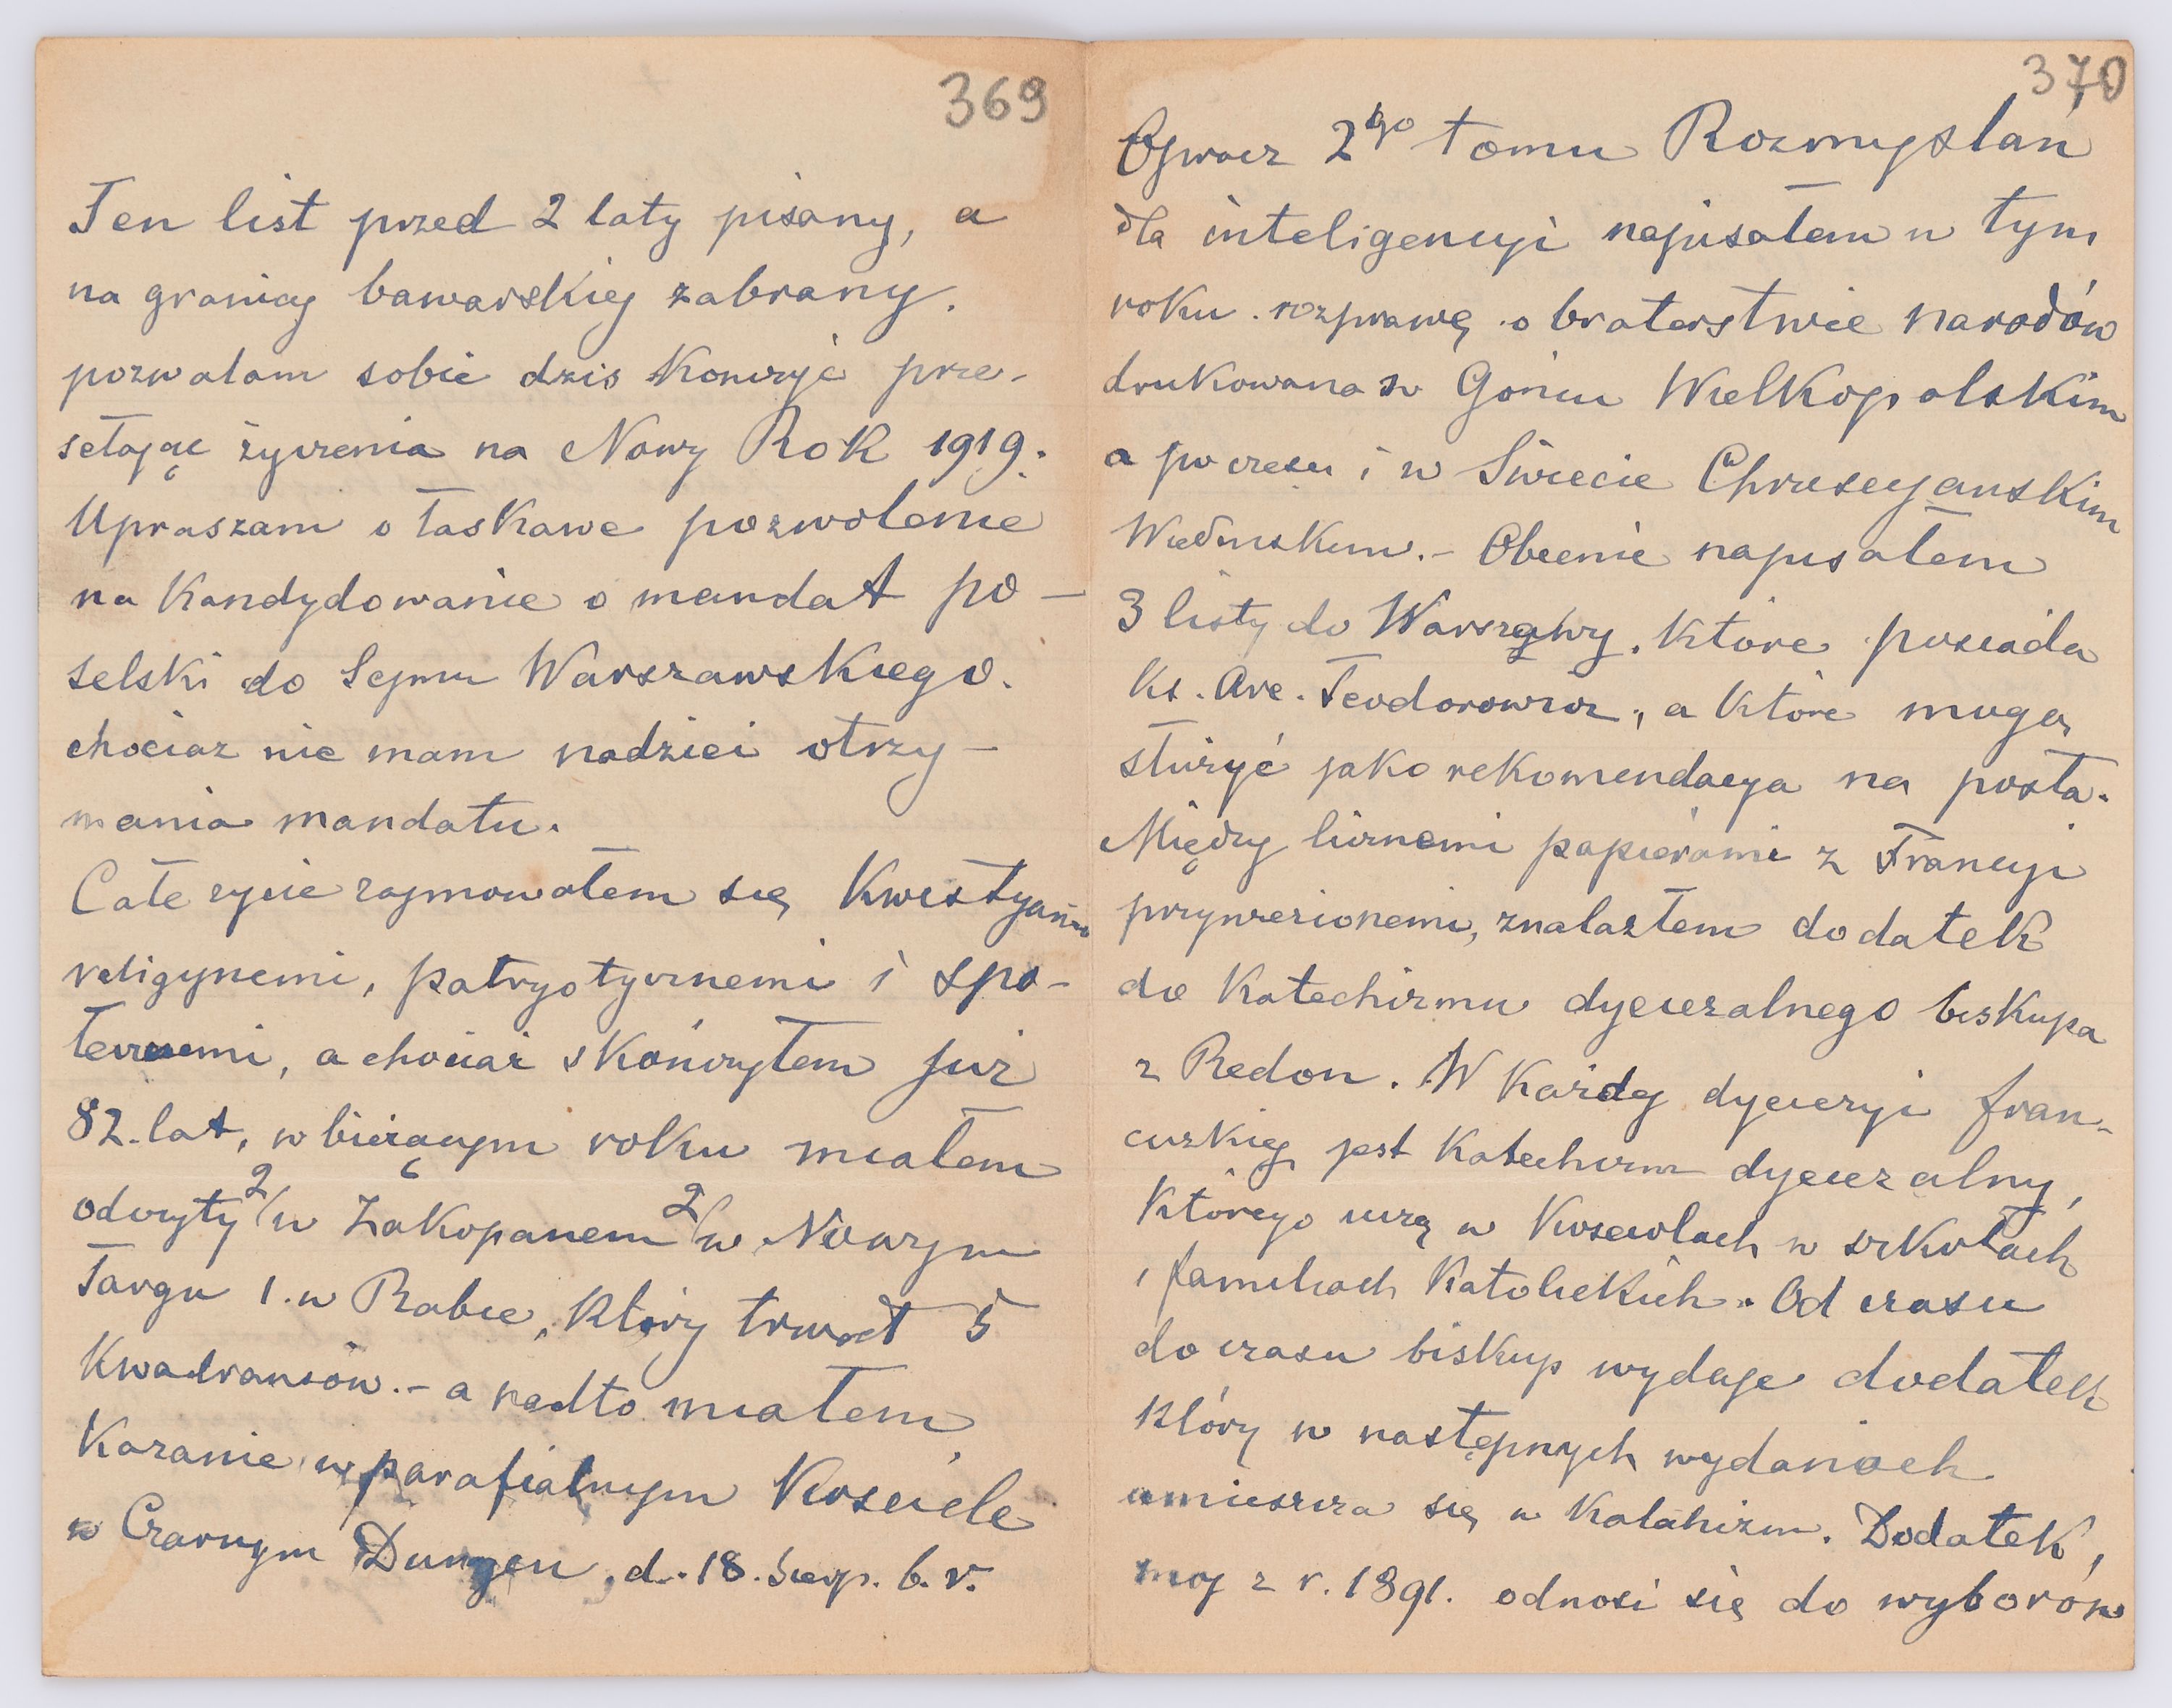 369
Ten list przed 2 laty pisany, a
na granicy bawarskiej zabrany.
pozwalam sobie dziś Kończyć prze-
sełając życzenia na Nowy Rok 1919.
Upraszam o łaskawe pozwolenie
na Kandydowanie o mandat po-
selski do Sejmu Warszawskiego.
chociaz nie mam nadziei otrzy-
mania mandatu.
Całe życie zajmowałem się Kwestyami
religijnemi, patryotycznemi i spo-
łecznemi, a chociaż skończyłem już
82. lat, w bieżącym roku miałem
odczyty 2/ w Zakopanem 2/ w Nowym
Targu 1. w Rabce, Który trwał 5
Kwadransów. - a nadto miałem
Kazanie w parafialnym Kościele
w Czarnym Dunajcu, d. 18. Sierp. b. r.
370
Oprocz 2go tomu Rozmyślań
dla inteligencyi napisałem w tym
roku rozprawę o braterstwie narodów
drukowana w Gońcu Wielkopolskim
a po czesku i w Świecie Chrześcyanskim
Wiedeńskim. - Obecnie napisałem
3 listy do Warszawy, Które posiada
Ks. Arc. Teodorowicz, a Które mogą
służyć jako rekomendacya na posła.
Między licznemi papierami z Francyi
przywiezionemi, znalazłem dodatek
do Katechizmu dyecezalnego biskupa
z Redon. W Każdej dyecezyi fran-
cuzkiej jest Katechizm dyecezalny,
Którego uczą w Kościołach w szkołach
i familiach Katolickich. Od czasu
do czasu biskup wydaje dodatek
Który w następnych wydaniach
umieszcza się w Katehizm. Dodatek,
moj z r. 1891. odnosi się do wyborów